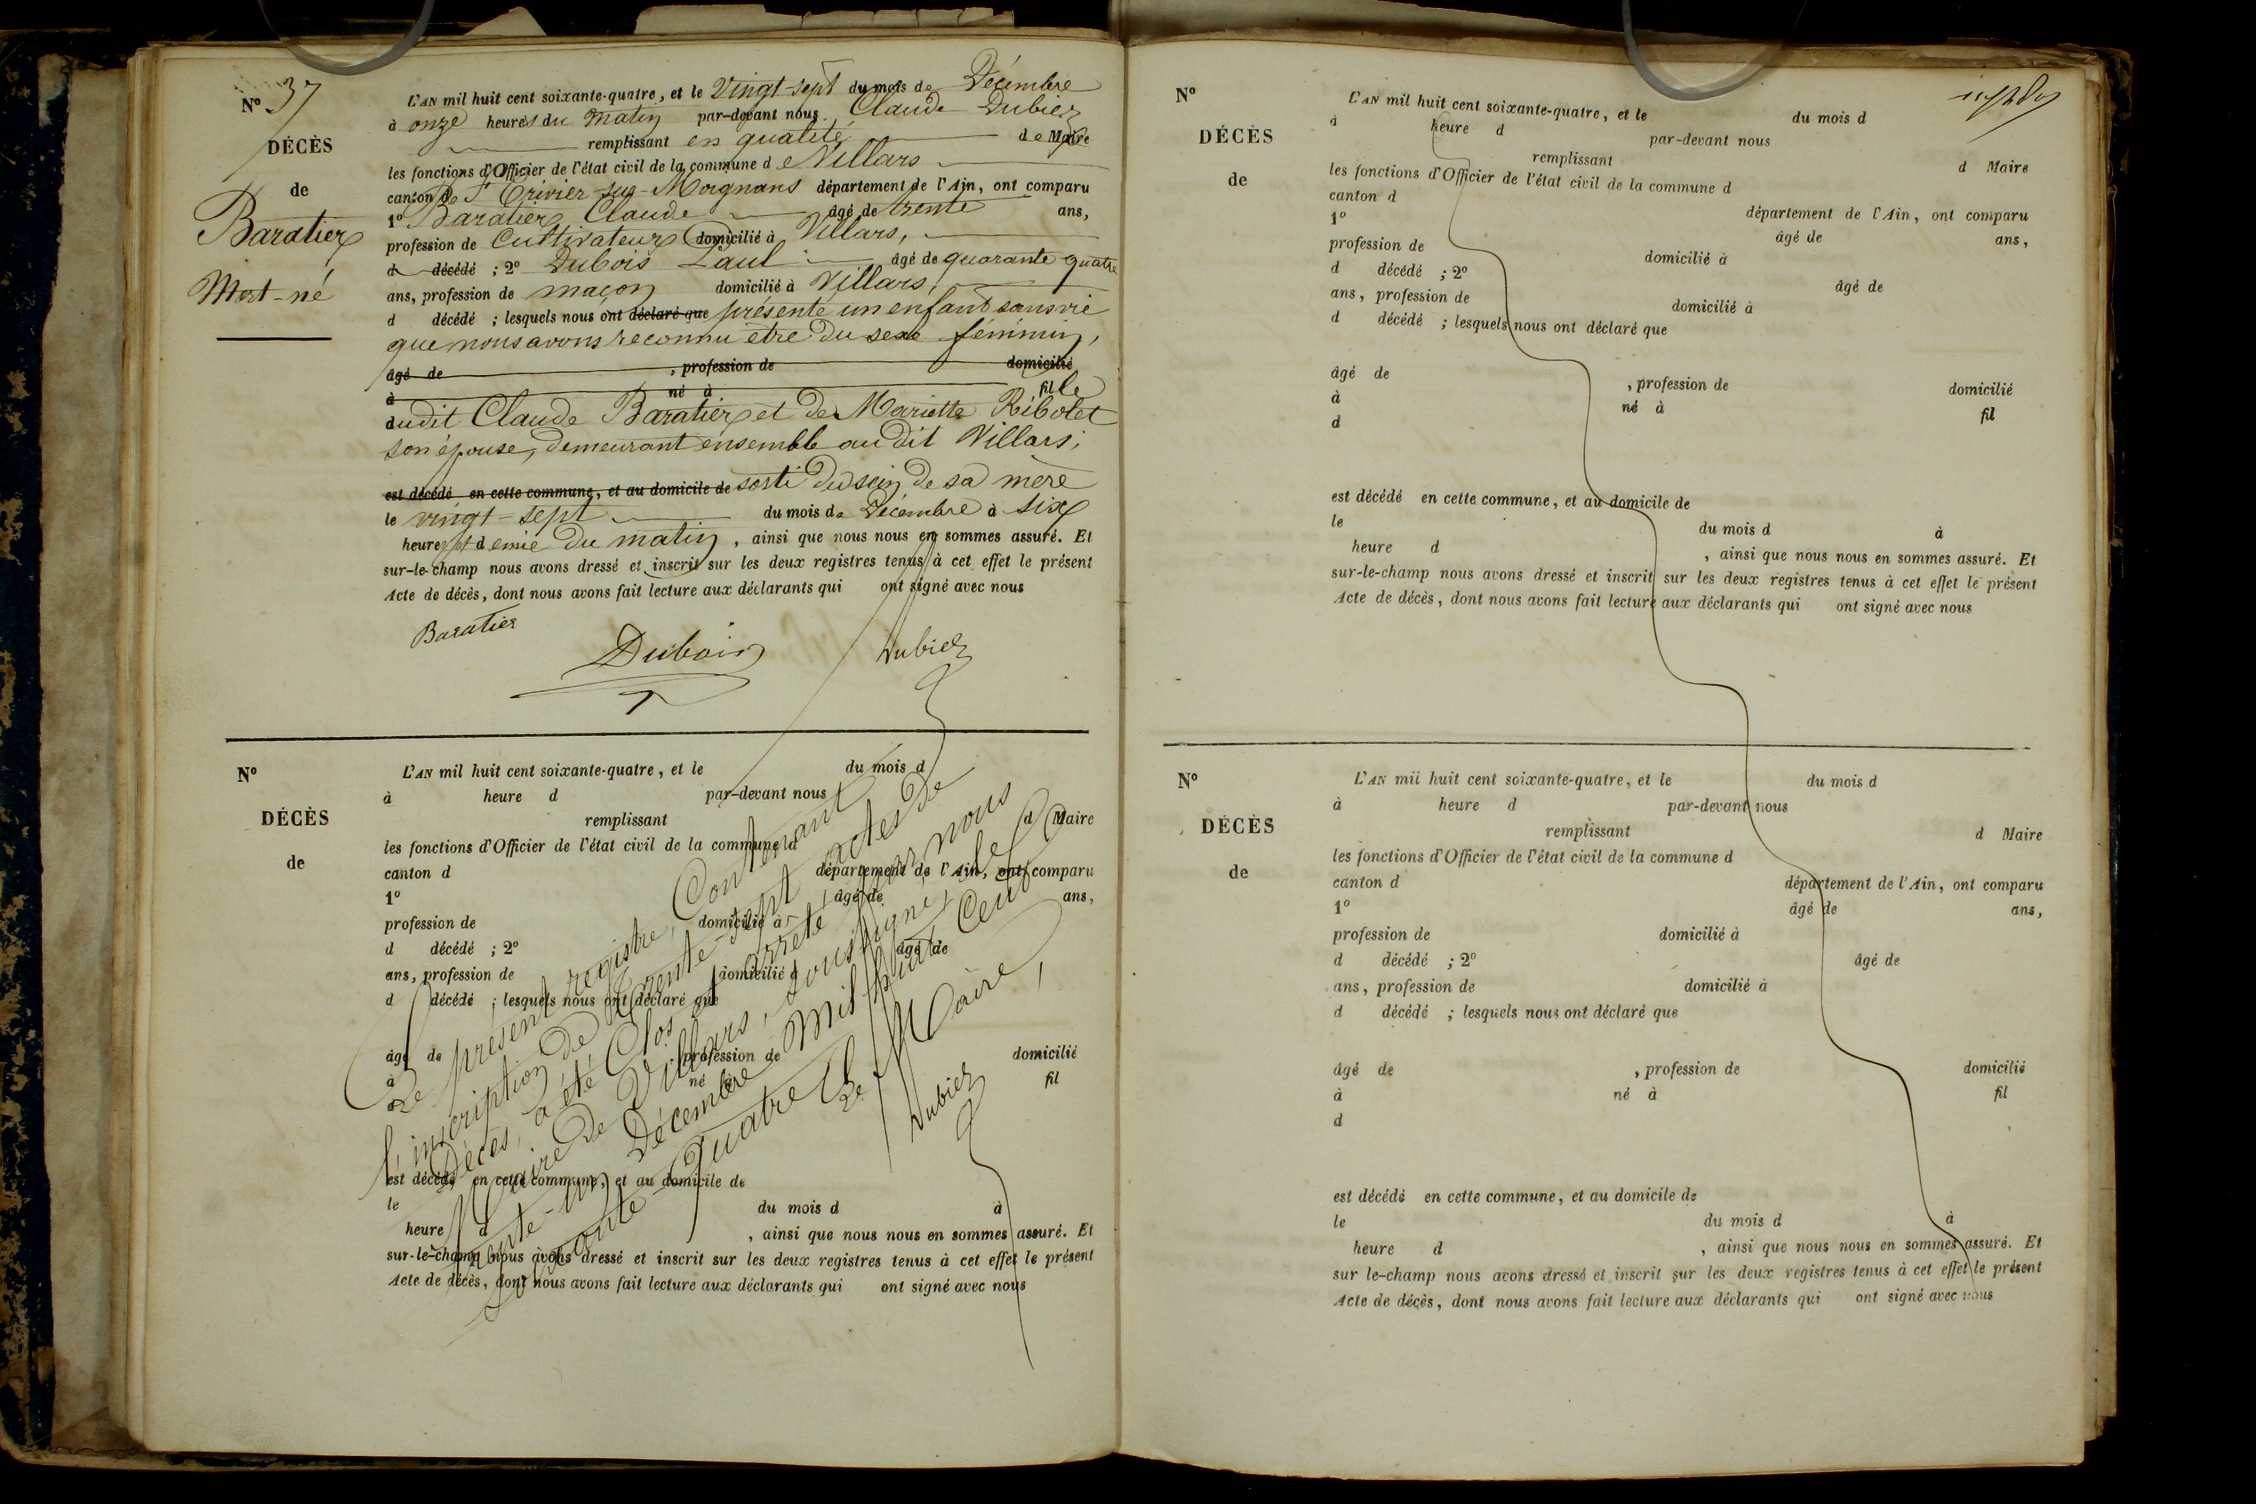 N° 37
DÉCÈS
de
Baratier
Mort-né
L'AN mil huit cent soixante-quatre, et le Vingt-sept du mois de Décembre
à onze heures du matin par-devant nous Claude Dubiez
remplissant en qualité de Maire
les fonctions d'Officier de l'état civil de la commune de Villars
canton de St Trivier-sur-Moignans département de l'Ain, ont comparu
1° Baratier Claude âgé de trente ans,
profession de Cultivateur domicilié à Villars,
d décédé ; 2° Dubois Paul âgé de quarante quatre
ans, profession de maçon domicilié à Villars,
d décédé ; lesquels nous ont déclaré que présenté un enfant sans vie
que nous avons reconnu être du sexe féminin,
âgé de , profession de domicilié
à né à fille
dudit Claude Baratier et de Mariette Ribolet
son épouse, demeurant ensemble au dit Villars;
est décédé en cette commune, et au domicile de sorti du sein de sa mère
le vingt-sept du mois de Décembre à six
heures et demie du matin, ainsi que nous nous en sommes assuré. Et
sur-le-champ nous avons dressé et inscrit sur les deux registres tenus à cet effet le présent
Acte de décès, dont nous avons fait lecture aux déclarants qui ont signé avec nous
Baratier
Dubois
Dubiez
N°
DÉCÈS
de
L'AN mil huit cent soixante-quatre, et le du mois d
à heure d par-devant nous
remplissant d Maire
les fonctions d'Officier de l'état civil de la commune d
canton d département de l'Ain, ont comparu
1° âgé de ans,
profession de domicilié à
d décédé ; 2° âgé de
ans, profession de domicilié à
d décédé ; lesquels nous ont déclaré que
âgé de , profession de domicilié
à né à fil
d
est décédé en cette commune, et au domicile de
le du mois d à
heure d , ainsi que nous nous en sommes assuré. Et
sur-le-champ nous avons dressé et inscrit sur les deux registres tenus à cet effet le présent
Acte de décès, dont nous avons fait lecture aux déclarants qui ont signé avec nous
Le présent registre, Contenant
l'inscription de Trente-sept actes de
Décès, a été Clos et arrêté par nous
Maire de Villars, soussigné, le
trente-un Décembre mil huit Cent
soixante-Quatre
Le Maire,
Dubiez
N°
DÉCÈS
de
L'AN mil huit cent soixante-quatre, et le du mois d
à heure d par-devant nous
remplissant d Maire
les fonctions d'Officier de l'état civil de la commune d
canton d département de l'Ain, ont comparu
1° âgé de ans,
profession de domicilié à
d décédé ; 2° âgé de
ans, profession de domicilié à
d décédé ; lesquels nous ont déclaré que
âgé de , profession de domicilié
à né à fil
d
est décédé en cette commune, et au domicile de
le du mois d à
heure d , ainsi que nous nous en sommes assuré. Et
sur-le-champ nous avons dressé et inscrit sur les deux registres tenus à cet effet le présent
Acte de décès, dont nous avons fait lecture aux déclarants qui ont signé avec nous
N°
DÉCÈS
de
L'AN mil huit cent soixante-quatre, et le du mois d
à heure d par-devant nous
remplissant d Maire
les fonctions d'Officier de l'état civil de la commune d
canton d département de l'Ain, ont comparu
1° âgé de ans,
profession de domicilié à
d décédé ; 2° âgé de
ans, profession de domicilié à
d décédé ; lesquels nous ont déclaré que
âgé de , profession de domicilié
à né à fil
d
est décédé en cette commune, et au domicile de
le du mois d à
heure d , ainsi que nous nous en sommes assuré. Et
sur le-champ nous avons dressé et inscrit sur les deux registres tenus à cet effet le présent
Acte de décès, dont nous avons fait lecture aux déclarants qui ont signé avec nous